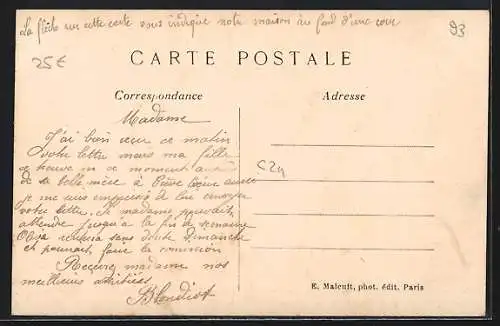 La flèche sur cette carte vous indique notre maison au fond d'une cour
93
25€
CARTE POSTALE
Correspondance
Adresse
Madame
J'ai bien reçu ce matin
votre lettre mais ma fille
se trouve en ce moment
de sa belle mère à
je me suis de lui envoyer
votre lettre. Si madame pouvait
attendre jusqu'à la fin de semaine
sans doute Dimanche
et pourrait faire la commission
Recevez madame nos
meilleures
Blondiot
E. Malcuit, phot. édit. Paris